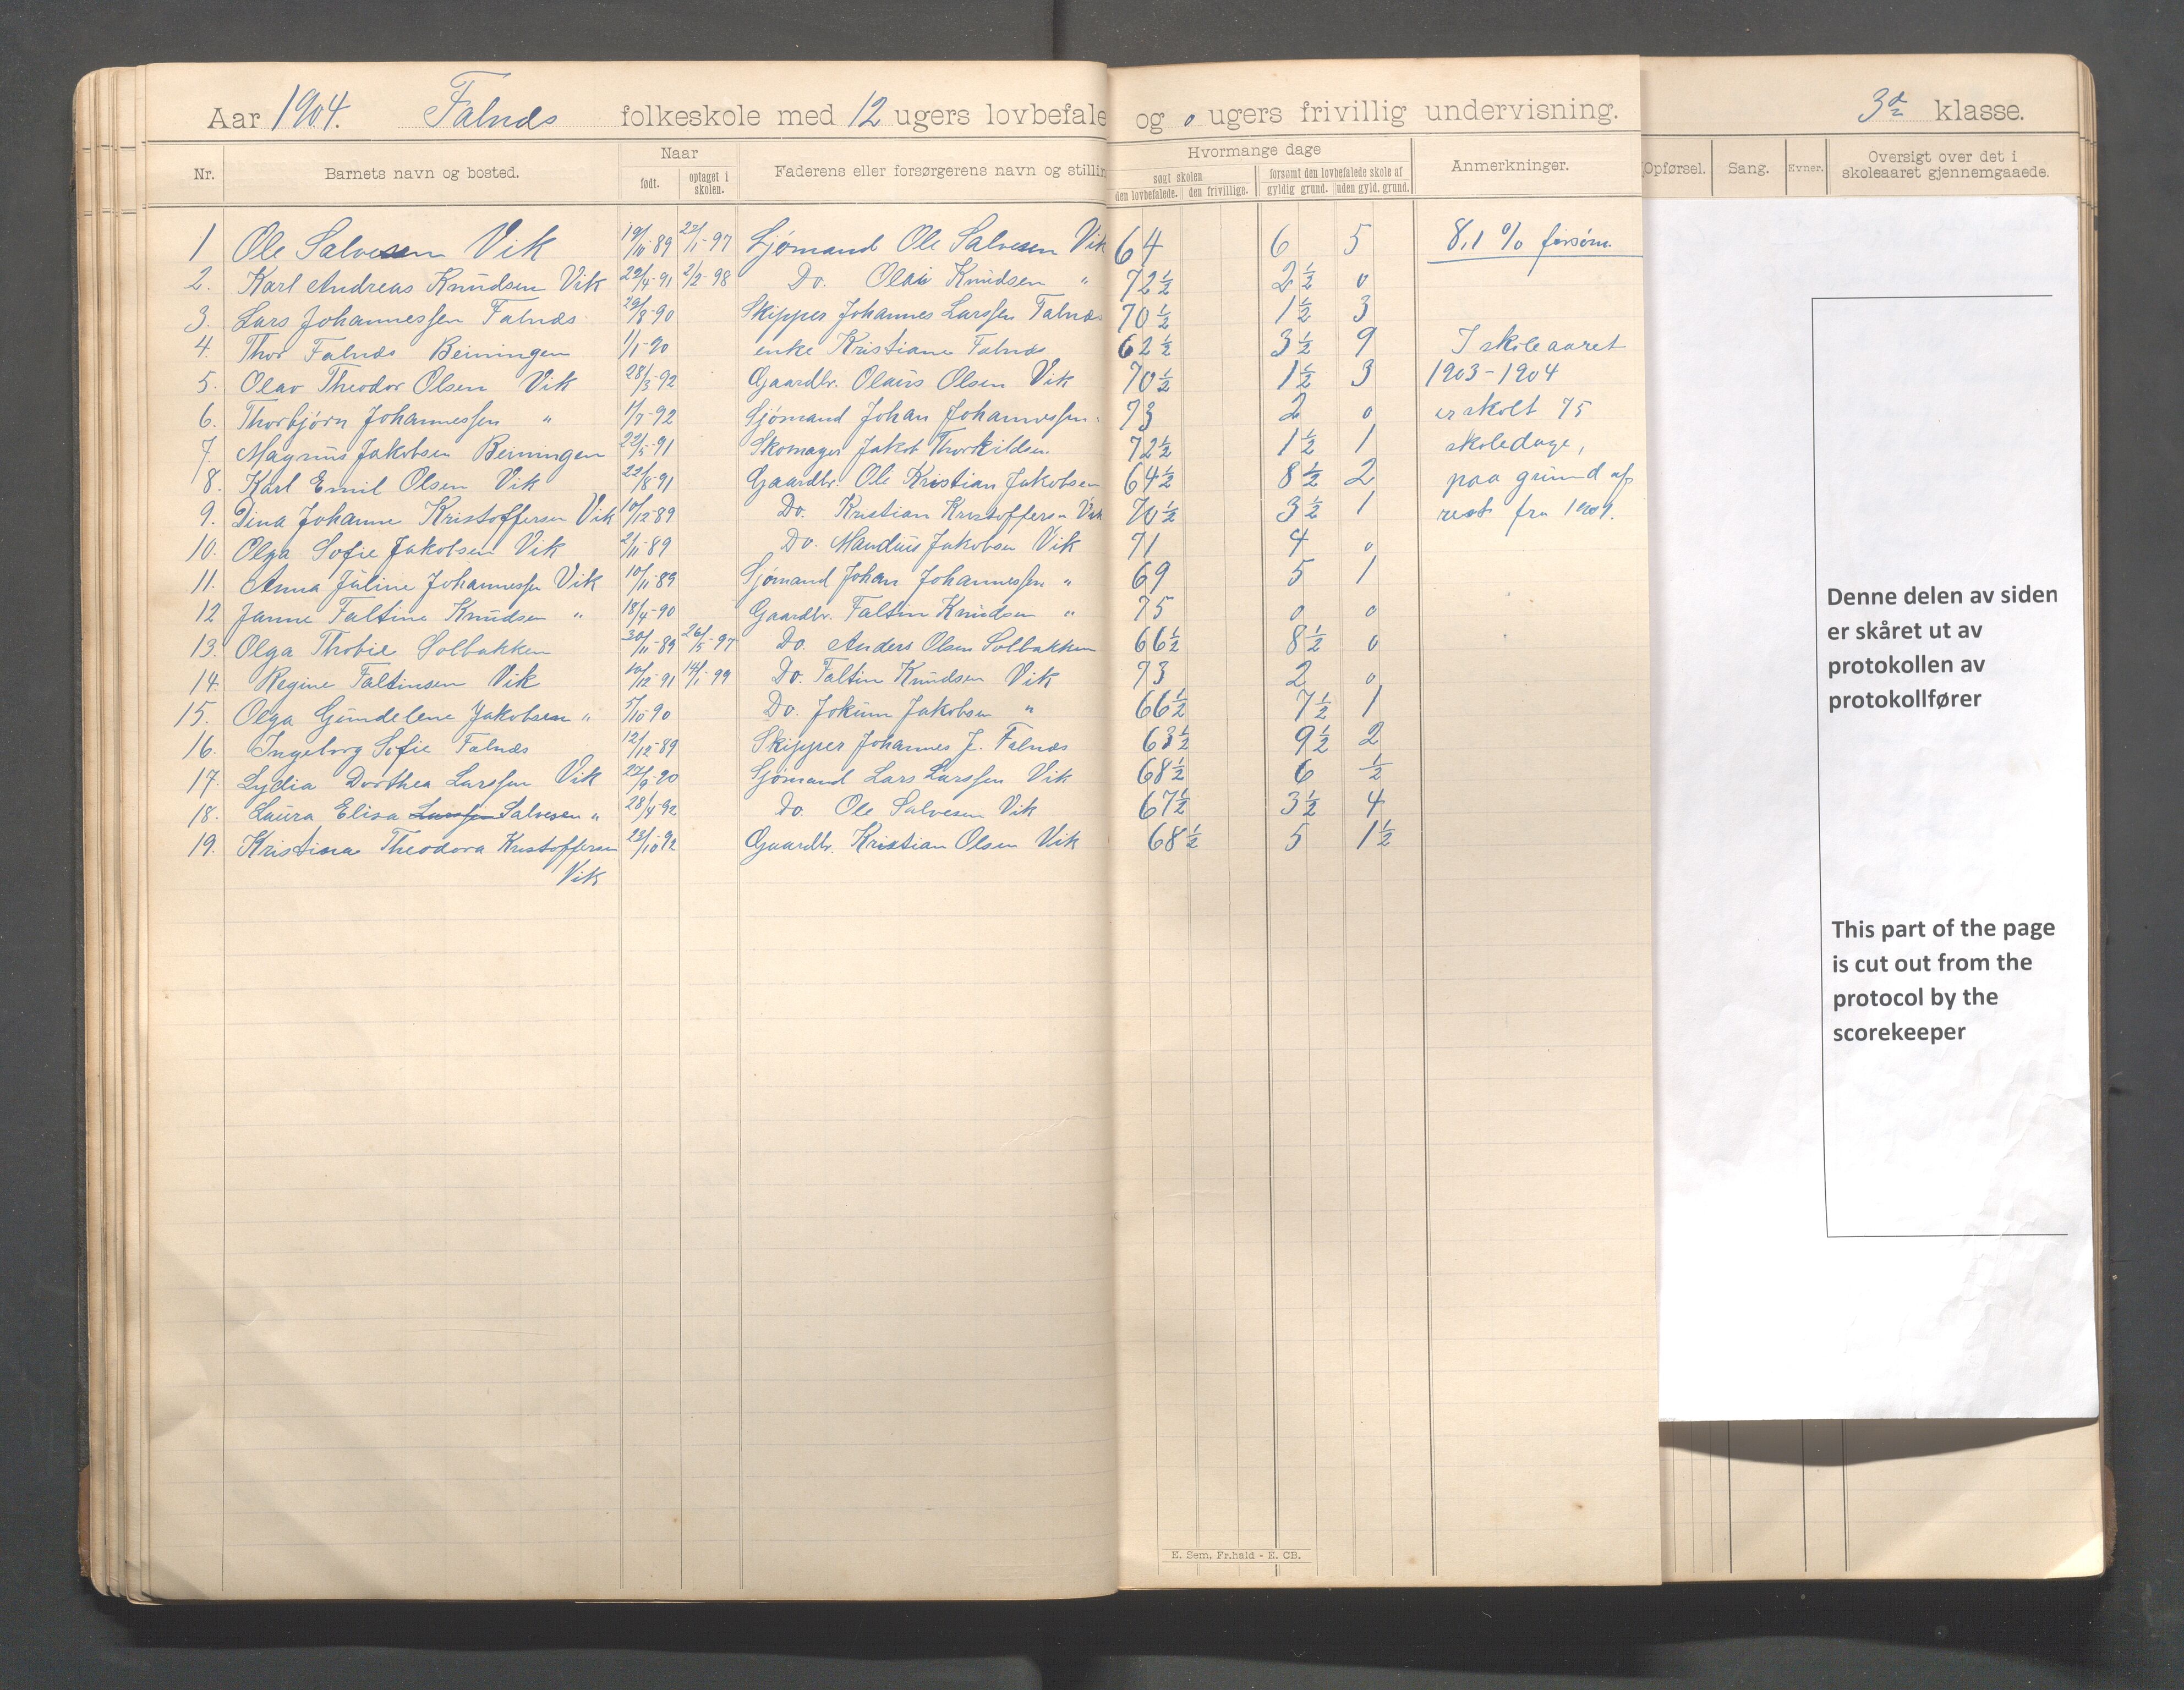 Aar 1904. Falnæs folkeskole med 12 ugers lovbefale og 0 ugers frivillig undervisning. 3die klasse.
Nr. Barnets navn og bosted. Naar født. optaget i skolen. Faderens eller forsørgerens navn og stillin Hvormange dage søgt skolen den lovbefalede. den frivillige. forsømt den lovbefalede skole af gyldig grund. uden gyld. grund. Anmerkninger. Opførsel. Sang. Evner. Oversigt over det i skoleaaret gjennemgaaede.
1 Ole Salvesen Vik 19/11-89 22/1-97 Sjømand Ole Salvesen Vik 64 6 5 8,1 % forsøm.
2. Karl Andreas Knudsen Vik 22/4-91 2/2-98 Do. Olai Knudsen " 72½ 2½ 0
3. Lars Johannessen Falnæs 29/8-90 Skipper Johannes Larssen Falnæs 70½ 1½ 3
4. Thor Falnæs Beiningen 1/1-90 enke Kristiane Falnæs 62½ 3½ 9 I skoleaaret
5. Olav Theodor Olsen Vik 28/3-92 Gaardbr. Olaus Olsen Vik 70½ 1½ 3 1903-1904
6. Thorbjørn Johannessen " 1/7-92 Sjømand Johan Johannessen " 73 2 0 er skolt 75
7. Magnus Jakobsen Beiningen 22/5-91 Skomager Jakob Thorkildsen 72½ 1½ 1 skoledage,
8. Karl Emil Olsen Vik 22/8-91 Gaardbr. Ole Kristian Jakobsen 64½ 8½ 2 paa grund af
9. Dina Johanne Kristoffersen Vik 10/12-89 Do. Kristian Kristoffersen Vik 70½ 3½ 1 rest fra
10. Olga Sofie Jakobsen Vik 21/11-89 Do. Mandius Jakobsen Vik 71 4 0
11. Anna Juline Johannessen Vik 10/11-89 Sjømand Johan Johannessen " 69 5 1
12 Janne Faltine Knudsen " 18/4-90 Gaardbr. Faltin Knudsen " 75 0 0
13. Olga Thobie Solbakken 30/11-89 26/5-97 Do. Anders Olsen Solbakken 66½ 8½ 0
14. Regine Faltinsen Vik 10/12-91 14/1-99 Do. Faltin Knudsen Vik 73 2 0
15. Olga Gundelene Jakobsen " 5/10-90 Do. Jokum Jakobsen " 66½ 7½ 1
16. Ingeborg Sofie Falnæs 12/12-89 Skipper Johannes J. Falnæs 63½ 9½ 2
17. Lydia Dorthea Larssen Vik 27/9-90 Sjømand Lars Larssen Vik 68½ 6 ½
18. Laura Elisa Larssen Salvesen " 28/4-92 Do. Ole Salvesen Vik 67½ 3½ 4
19. Kristina Theodora Kristoffersen 23/10-92 Gaardbr. Kristian Olsen Vik 68½ 5 1½
Vik
Denne delen av siden
er skåret ut av
protokollen av
protokollfører
This part of the page
is cut out from the
protocol by the
scorekeeper
E. Sem, Fr.hald - E. CB.